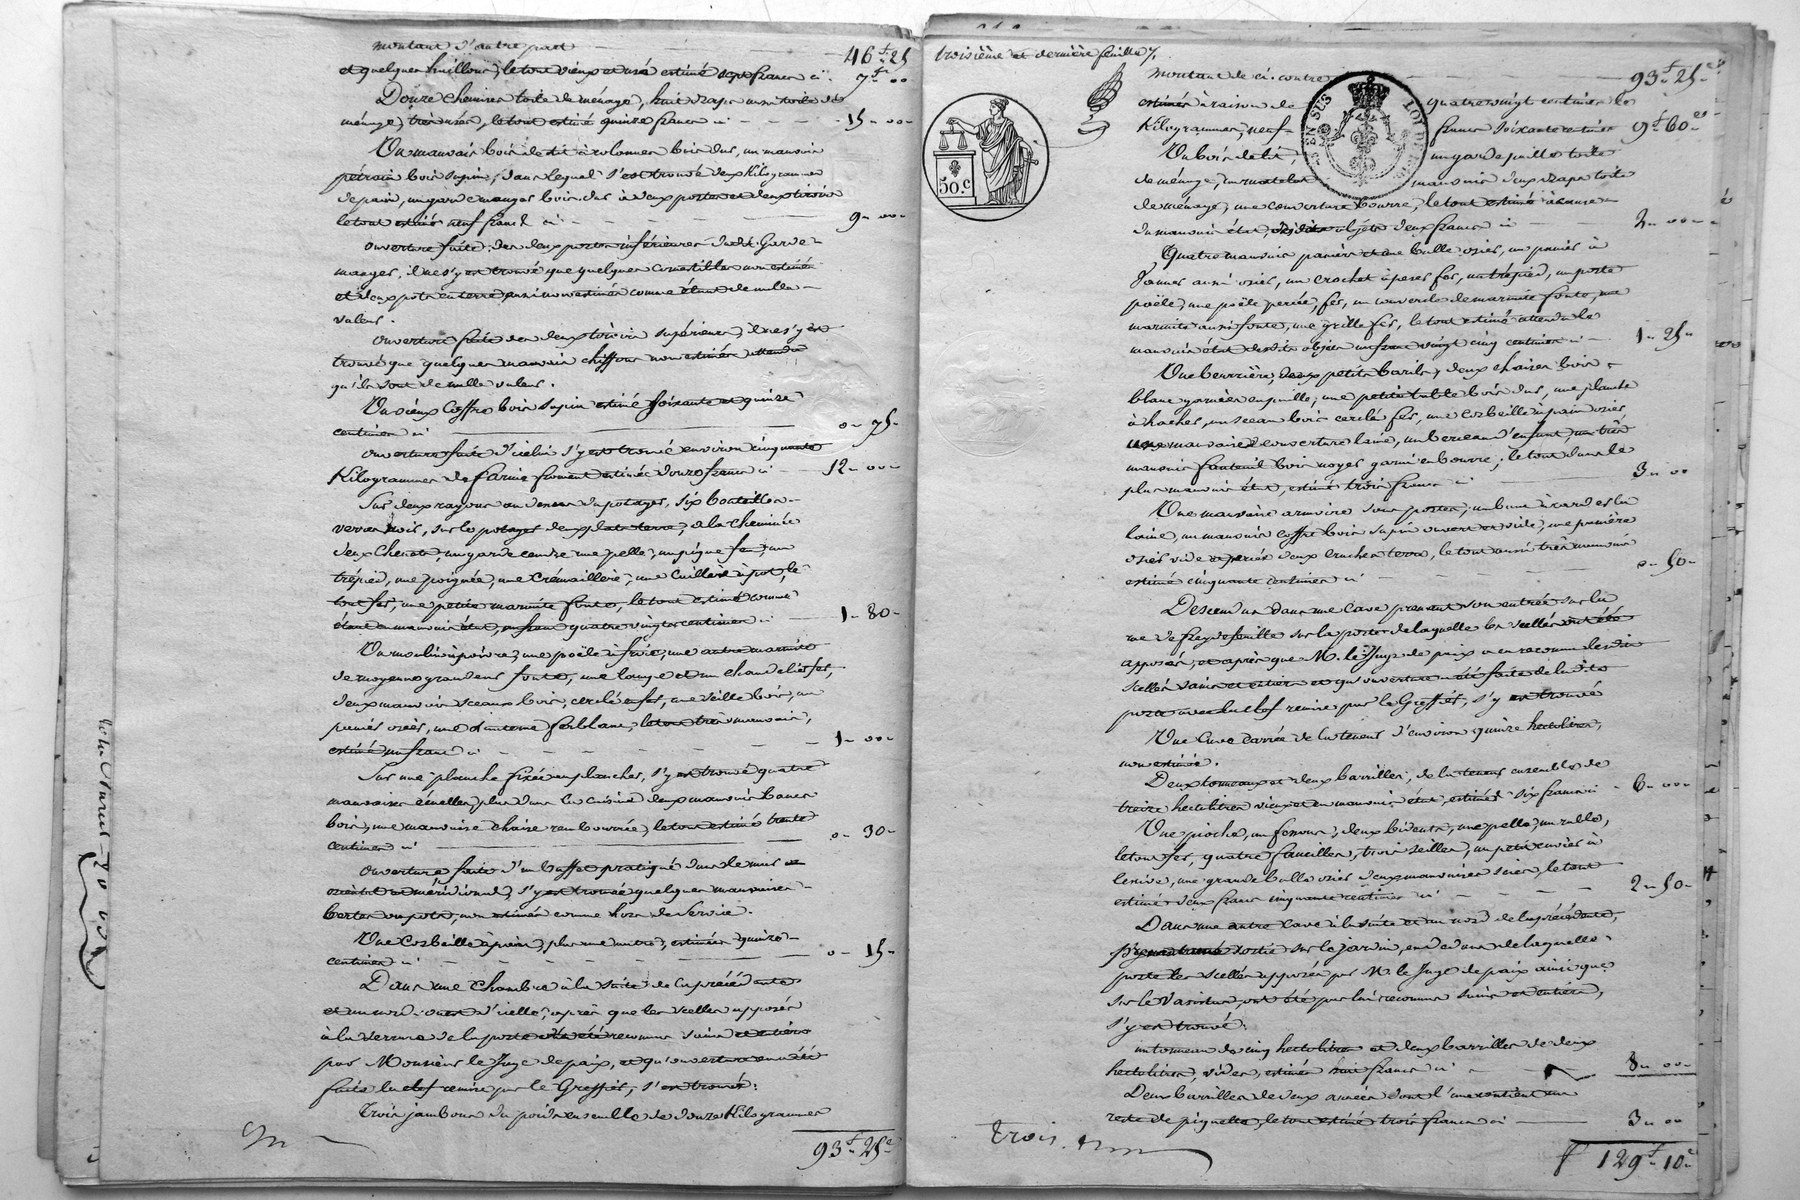 montant d'autre part 46f 25
et quelques haillons, le tout vieux et usé estimé sept francs ci 7f 00
Douze chemises toile de ménage, huit draps aussi toile de
ménage, très usés, le tout estimé quinze francs ci 15 00
Un mauvais bois de lit à colonnes bois dur, un mauvais
pétrin bois sapin, dans lequel s'est trouvé deux Kilogrammes
de pain, un garde manger bois dur à deux portes et deux tiroirs
le tout estimé neuf francs ci 9 00
Ouverture faite des deux portes inférieures dudit Garde
manger, il ne s'y est trouvé que quelques non estimé
et deux pots en terre aussi non estimés comme étant de nulle
valeur.
Ouverture faite des deux tiroirs supérieurs, il ne s'y est
trouvé que quelques mauvais chiffons non estimés attendu
qu'ils sont de nulle valeur.
Un vieux Coffre bois sapin estimé soixante et quinze
centimes ci 0 75
Ouverture faite d'icelui s'y est trouvé environ cinquante
Kilogrammes de farine froment estimée douze francs ci 12 00
Sur deux rayons au dessus du potager, six bouteilles
verre noir, sur le potager deux plats terre, à la cheminée
deux Chenets, un garde cendre une pelle, un pique feu, un
trépied, une poignée, une Crémaillère, une Cuillère à pot, le
tout fer, une petite marmite fonte, le tout estimé comme
étant en mauvais état, un franc quatre vingts centimes ci 1 80
Un moulin à poivre, une poële à frire, une autre marmite
de moyenne grandeur fonte, une lampe et un chandelier fer,
deux mauvais sceaux bois, cerclés en fer, une seille bois, un
panier osier, une lanterne ferblanc, le tout très mauvais,
estimé un franc ci 1 00
Sur une planche fixée au plancher, s'y est trouvé quatre
mauvaises écuelles, plus dans la cuisine deux mauvais bancs
bois, une mauvaise chaise rembourrée, le tout estimé trente
centimes ci 0 30
Ouverture faite d'un buffet pratiqué dans le mur
orient et méridional, s'y est trouvé quelques mauvaises
non estimées comme hors de Service.
Une Corbeille à pain, plus une autre, estimées quinze
centimes ci 0 15
Dans une Chambre à la suite de la précédente
et au nord-ouest d'icelle, après que les scellés apposés
à la serrure de la porte ont été reconnus sains et entiers
par Monsieur le Juge de paix, et qu'ouverture en a été
faite la clef remise par le Greffier, s'est trouvé:
Trois jambons du poids ensemble de douze Kilogrammes
93f 25c
troisième et dernière feuille
50.c
montant de ci-contre 93f 25c
estimés à raison de quatre vingt centimes le
Kilogrammes, neuf francs soixante centimes 9f 60c
Un bois de lit, un garde paille toile
de ménage, un matelas mauvais deux draps toile
de ménage, une couverture bourre, le tout estimé à cause
du mauvais état, desdits objets deux francs ci 2 00
Quatre mauvais paniers et une balle osier, un panier à
formes aussi osier, un crochet à peser fer, un trépied, un porte
poële, une poële percée, fer, un couvercle de marmite fonte, une
marmite aussi fonte, une grille fer, le tout estimé attendu le
mauvais état desdits objets un franc vingt cinq centimes ci 1 25
Une beurrière, deux petits barils, deux chaises bois
blanc garnies en paille, une petite table bois dur, une planche
à hacher, un sceau bois cerclé fer, une Corbeille à pain osier,
une mauvaise couverture laine, un berceau d'enfant, un très
mauvais fauteuil bois noyer garni en bourre, le tout dans le
plus mauvais état, estimé trois francs ci 3 00
Une mauvaise armoire sans portes, un banc à carder la
laine, un mauvais coffre bois sapin ouvert et vide, une
osier vide deux cruches terre, le tout aussi très mauvais
estimé cinquante centimes ci 0 50
Descendus dans une Cave prenant son entrée sur la
rue de sur la porte de laquelle les scellés ont été
apposés, et après que M. le Juge de paix a eu reconnu lesdits
scellés sains et entiers et qu'ouverture a été faite de ladite
porte avec la clef remise par le Greffier, s'y est trouvé
Une Cuve carrée de la teneur d'environ quinze hectolitres,
non estimée.
Deux tonneaux et deux barrilles, de la teneur ensemble de
treize hectolitres vieux et en mauvais état, estimés six francs ci 6 00
Une pioche, un fossoir, deux bidents, une pelle,
le tout fer, quatre faucilles, trois seilles, un petit cuvier à
lessive, une grande balle osier deux mauvaises scies, le tout
estimé deux francs cinquante centimes ci 2 50
Dans une autre Cave à la suite et au nord de la précédente,
sortie sur le jardin, au dessus de laquelle
porte les scellés apposés par M. le Juge de paix ainsi que
sur le ont été par lui reconnus sains et entiers,
s'y est trouvé:
un tonneau de cinq hectolitres et deux barrilles de deux
hectolitres, vides, estimés huit francs ci 8 00
Deux barrilles de deux années dont l'une contient un
reste de piquette, le tout estimé trois francs ci 3 00
Trois. 129f 10c